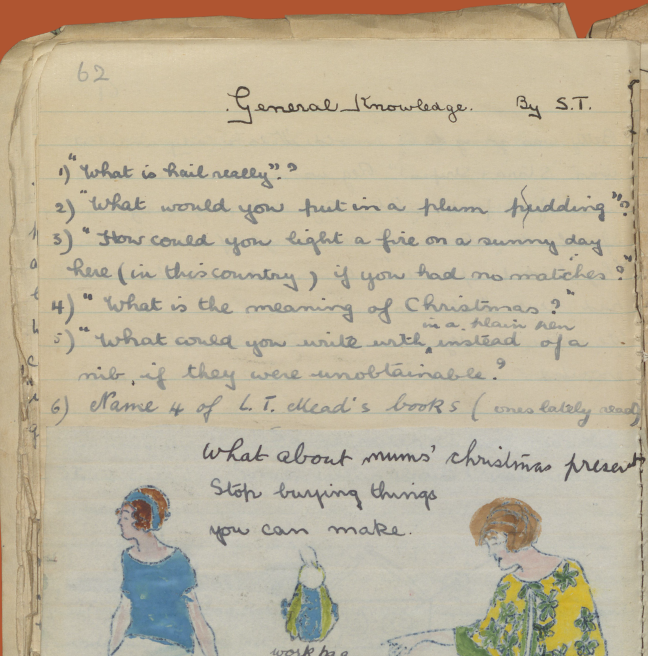 62
General Knowledge. By S.T.
1) "What is hail really".?
2) "What would you put in a plum pudding"?
3) "How could you light a fire on a sunny day
here (in this country) if you had no matches"?
4) "What is the meaning of Christmas?"
in a plain pen
5) "What could you write with, instead of a
nib, if they were unobtainable.?
6) Name 4 of L.T. Mead's books (ones lately read)
What about mums' christmas present
Stop burying things
you can make.
work